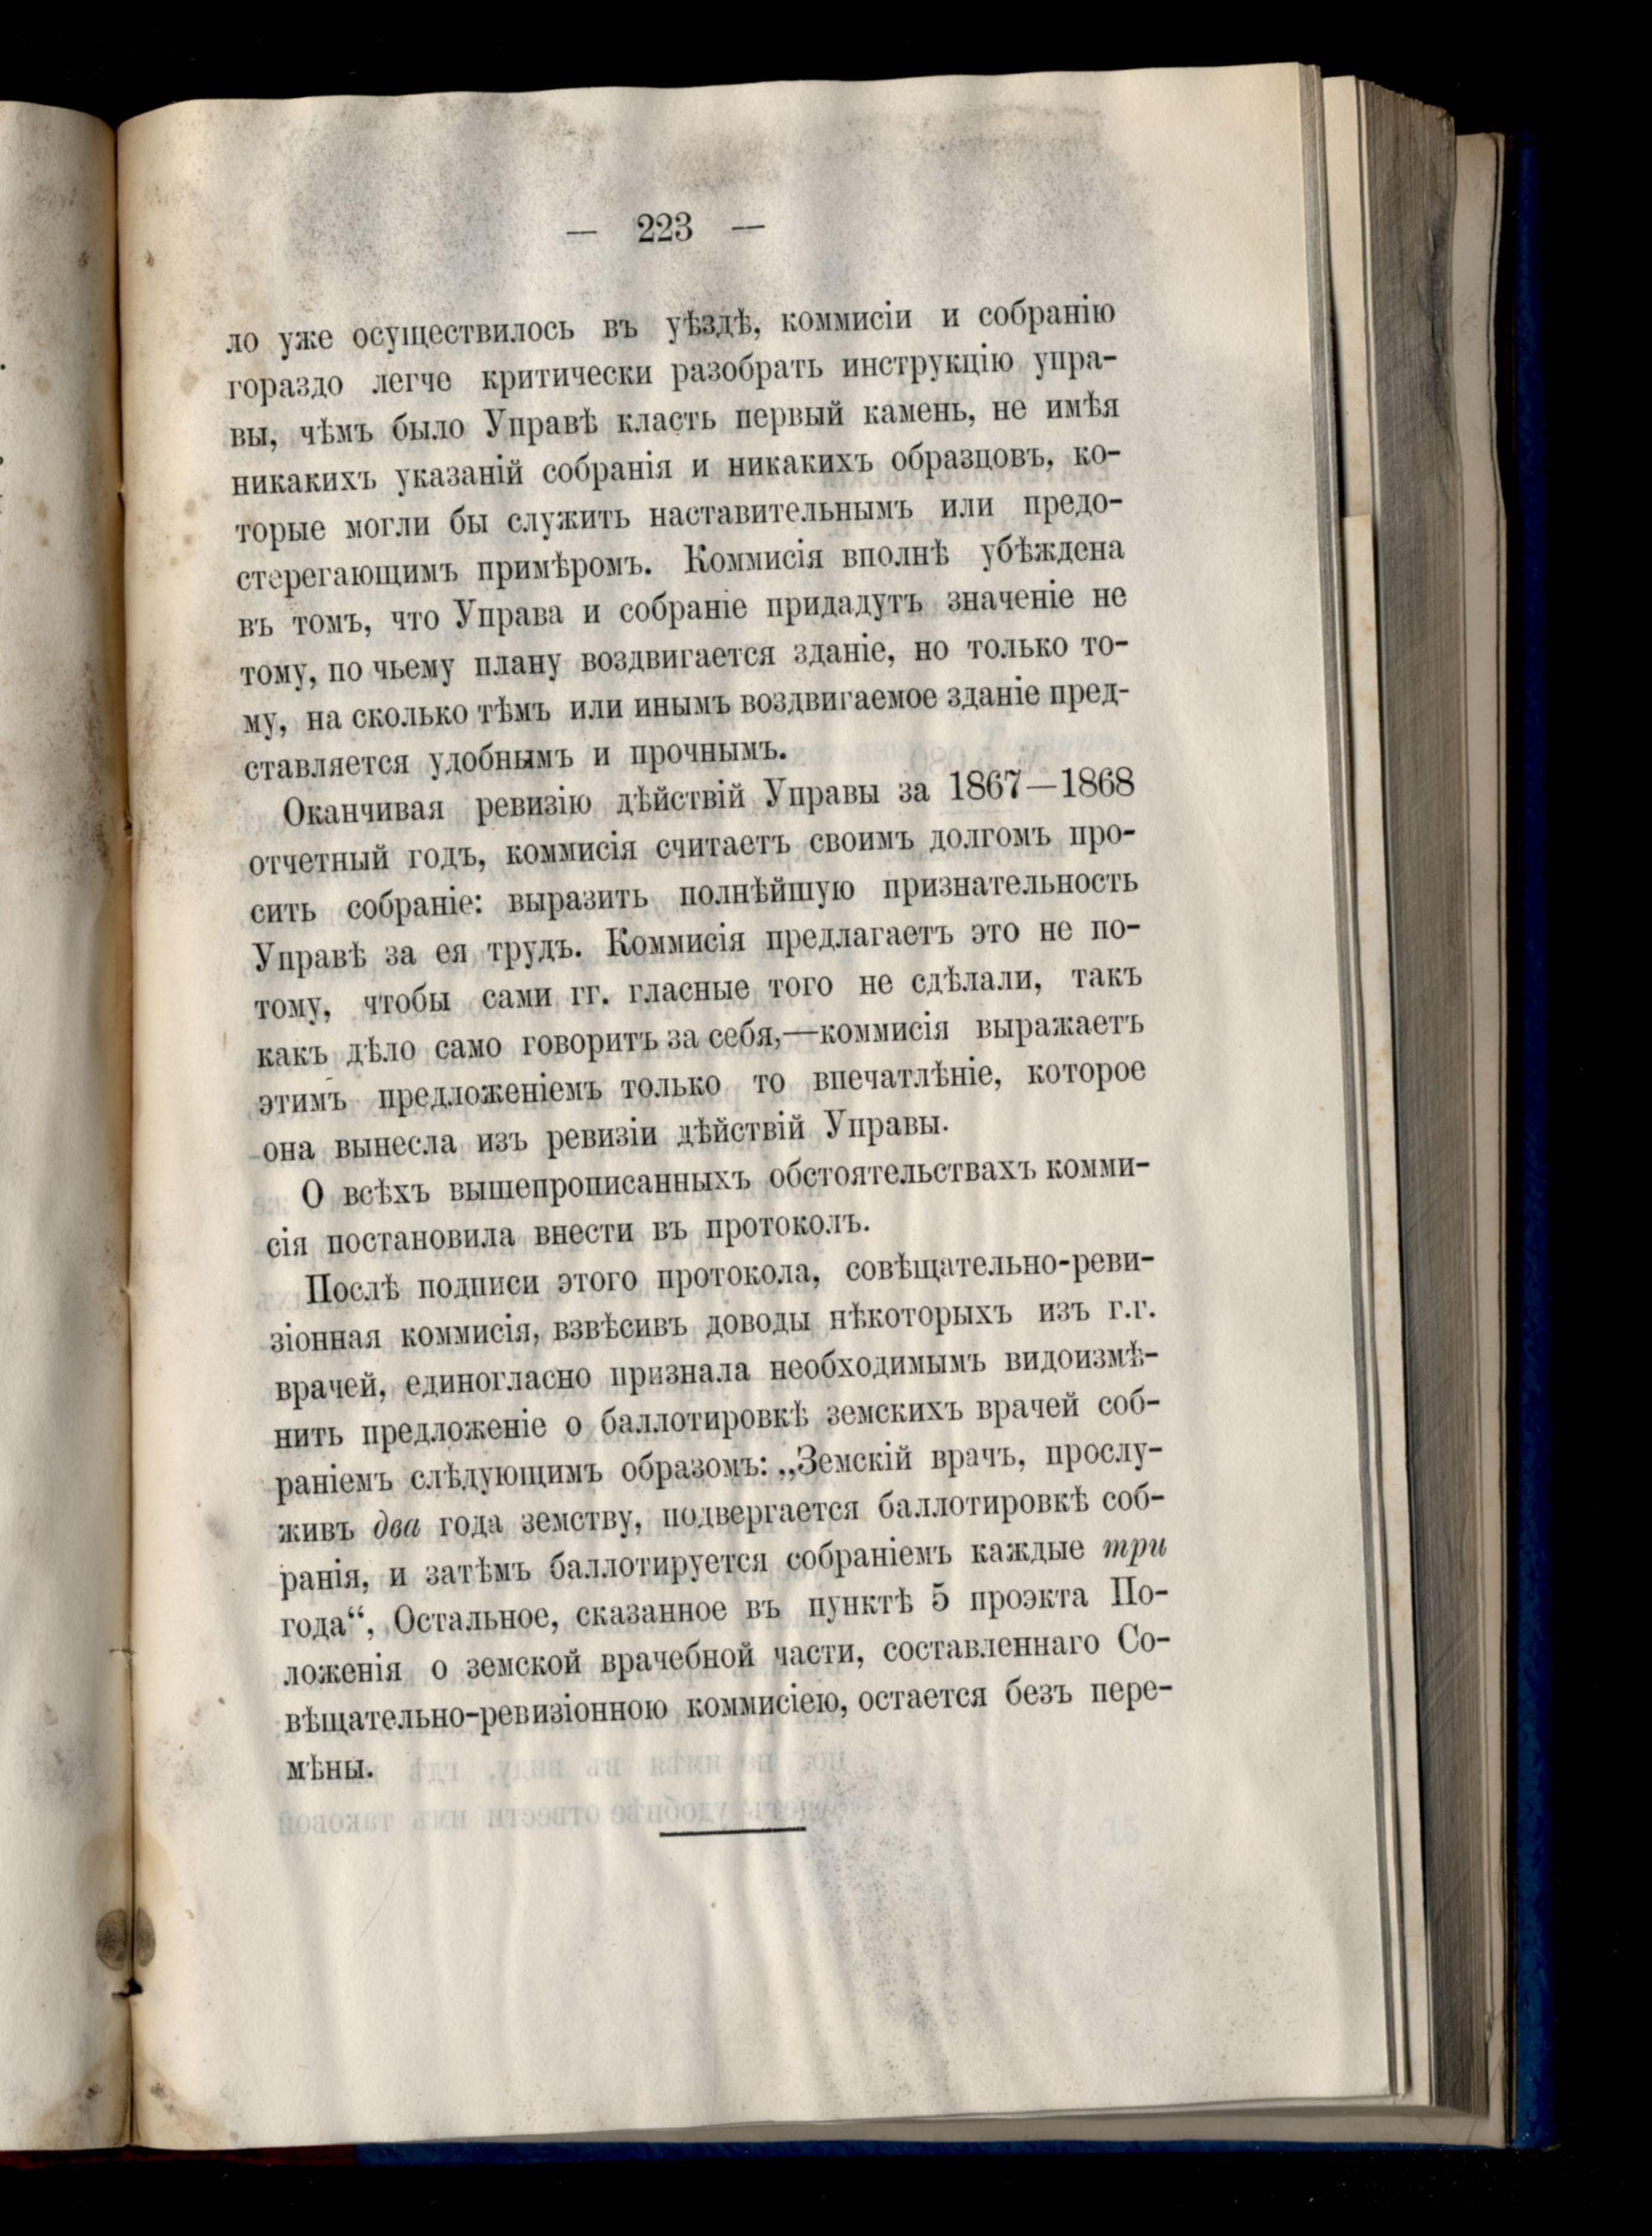 — 223 —
ло уже осуществилось въ уѣздѣ, коммисіи и собранію
гораздо легче критически разобрать инструкцію упра-
вы, чѣмъ было Управѣ класть первый камень, не имѣя
никакихъ указаній собранія и никакихъ образцовъ, ко-
торые могли бы служить наставительнымъ или предо-
стерегающимъ примѣромъ. Коммисія вполнѣ убѣждена
въ томъ, что Управа и собраніе придадутъ значеніе не
тому, по чьему плану воздвигается зданіе, но только то-
му, на сколько тѣмъ или инымъ воздвигаемое зданіе пред-
ставляется удобнымъ и прочнымъ.
Оканчивая ревизію дѣйствій Управы за 1867—1868
отчетный годъ, коммисія считаетъ своимъ долгомъ про-
сить собраніе: выразить полнѣйшую признательность
Управѣ за ея трудъ. Коммисія предлагаетъ это не по-
тому, чтобы сами гг. гласные того не сдѣлали, такъ
какъ дѣло само говоритъ за себя,—коммисія выражаетъ
этимъ предложеніемъ только то впечатлѣніе, которое
она вынесла изъ ревизіи дѣйствій Управы.
О всѣхъ вышепрописанныхъ обстоятельствахъ комми-
сія постановила внести въ протоколъ.
Послѣ подписи этого протокола, совѣщательно-реви-
зіонная коммисія, взвѣсивъ доводы нѣкоторыхъ изъ г.г.
врачей, единогласно признала необходимымъ видоизмѣ-
нить предложеніе о баллотировкѣ земскихъ врачей соб-
раніемъ слѣдующимъ образомъ: „Земскій врачъ, прослу-
живъ два года земству, подвергается баллотировкѣ соб-
ранія, и затѣмъ баллотируется собраніемъ каждые три
года“, Остальное, сказанное въ пунктѣ 5 проэкта По-
ложенія о земской врачебной части, составленнаго Со-
вѣщательно-ревизіонною коммисіею, остается безъ пере-
мѣны.